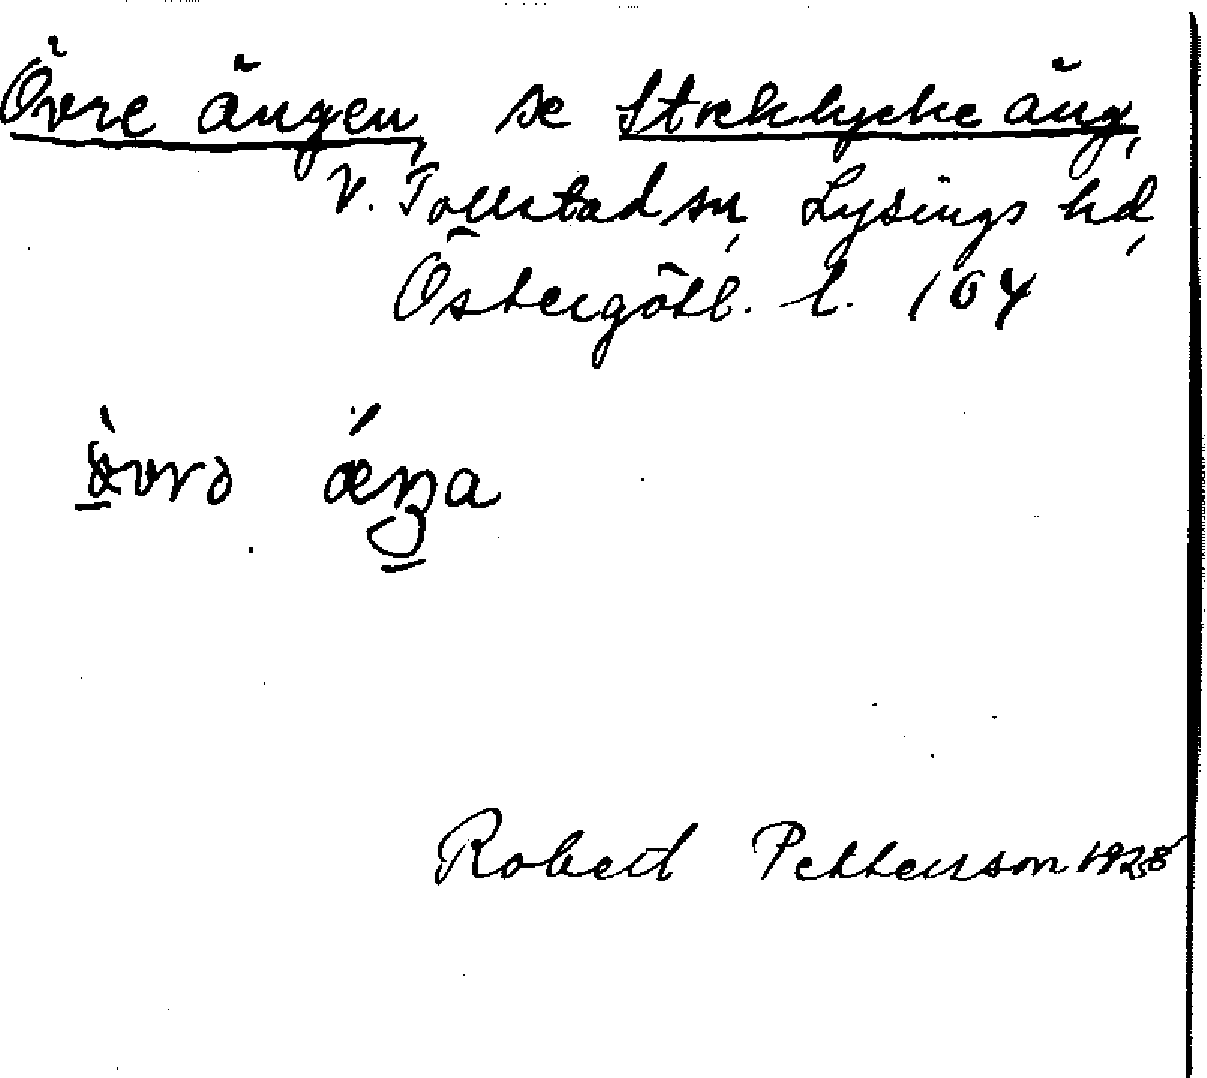 Övre ängen, se Stocklycke äng,
V. Tollstad sn, Lysings hd,
Östergötl. l. 104
Robert Pettersson 1928